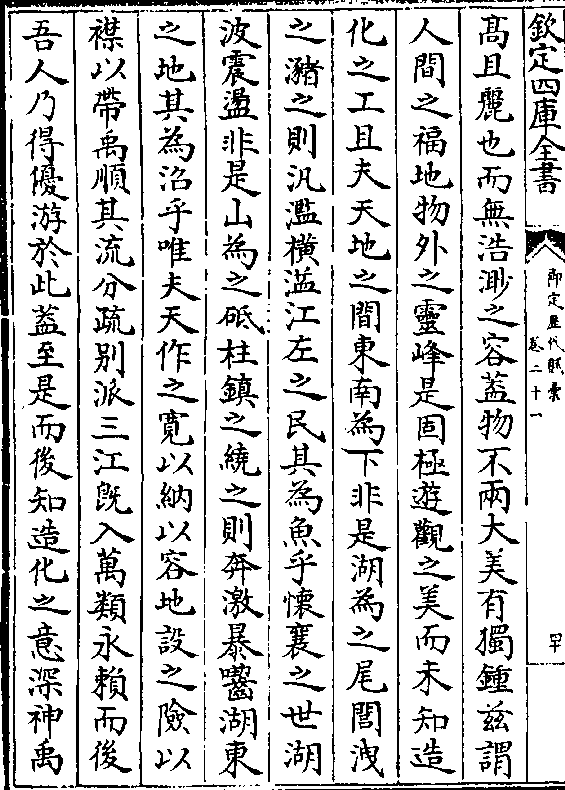 欽定四庫全書
御定歴代賦彚
卷二十一
罕
髙且麗也而無浩渺之容蓋物不兩大美有獨鍾兹謂
人間之福地物外之靈峰是固極遊觀之美而未知造
化之工且夫天地之間東南為下非是湖為之尾閭洩
之瀦之則汎濫橫溢江左之民其為魚乎懷襄之世湖
波震盪非是山為之砥柱鎮之繞之則奔激暴齧湖東
之地其為沼乎唯夫天作之寛以納以容地設之險以
襟以帶禹順其流分疏别派三江既入萬類永頼而後
吾人乃得優游於此蓋至是而後知造化之意深神禹